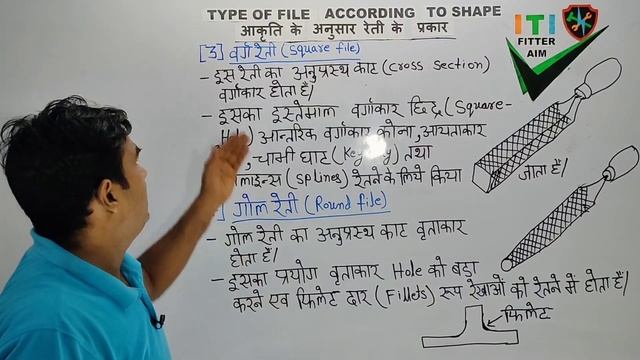 TYPE OF FILE ACCORDING TO SHAPE
आकृति के अनुसार रेती के प्रकार
ITI
FITTER
AIM
[3] वर्ग रेती (Square file)
- इस रेती का अनुप्रस्थ काट (Cross section)
वर्गाकार होता है।
- इसका इस्तेमाल वर्गाकार छिद्र (Square-
आन्तरिक वर्गाकार कोना, आयताकार
, चाबी घाट तथा
(splines) रेतने के लिये किया जाता है।
] गोल रेती (Round file)
- गोल रेती का अनुप्रस्थ काट वृताकार
होता है।
- इसका प्रयोग वृताकार Hole को बड़ा
करने एव फिलेट दार (Fillets) रूप रेखाओं को रेतने में होता है।
फिलेट